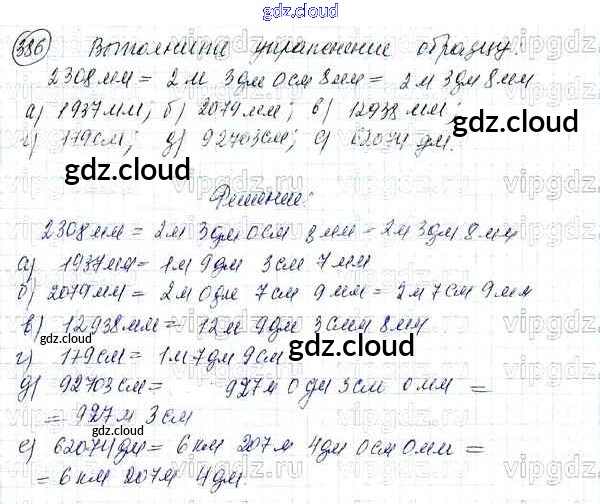 gdz.cloud
386 Выполните упражнение образцу:
2308мм = 2м 3дм 0см 8мм = 2м 3дм 8мм
а) 1937мм; б) 2079мм; в) 12938мм;
г) 179см; д) 92703см; е) 62074 дм.
gdz.cloud gdz.cloud
Решение:
2308мм = 2м 3дм 0см 8мм = 2м 3дм 8мм
а) 1937мм = 1м 9дм 3см 7мм
б) 2079мм = 2м 0дм 7см 9мм = 2м 7см 9мм
в) 12938мм = 12м 9дм 3см 8мм
г) 179см = 1м 7дм 9см
gdz.cloud
д) 92703см = 927м 0дм 3см 0мм =
= 927м 3см
gdz.cloud
е) 62074дм = 6км 207м 4дм 0см 0мм =
= 6км 207м 4дм
gdz.cloud